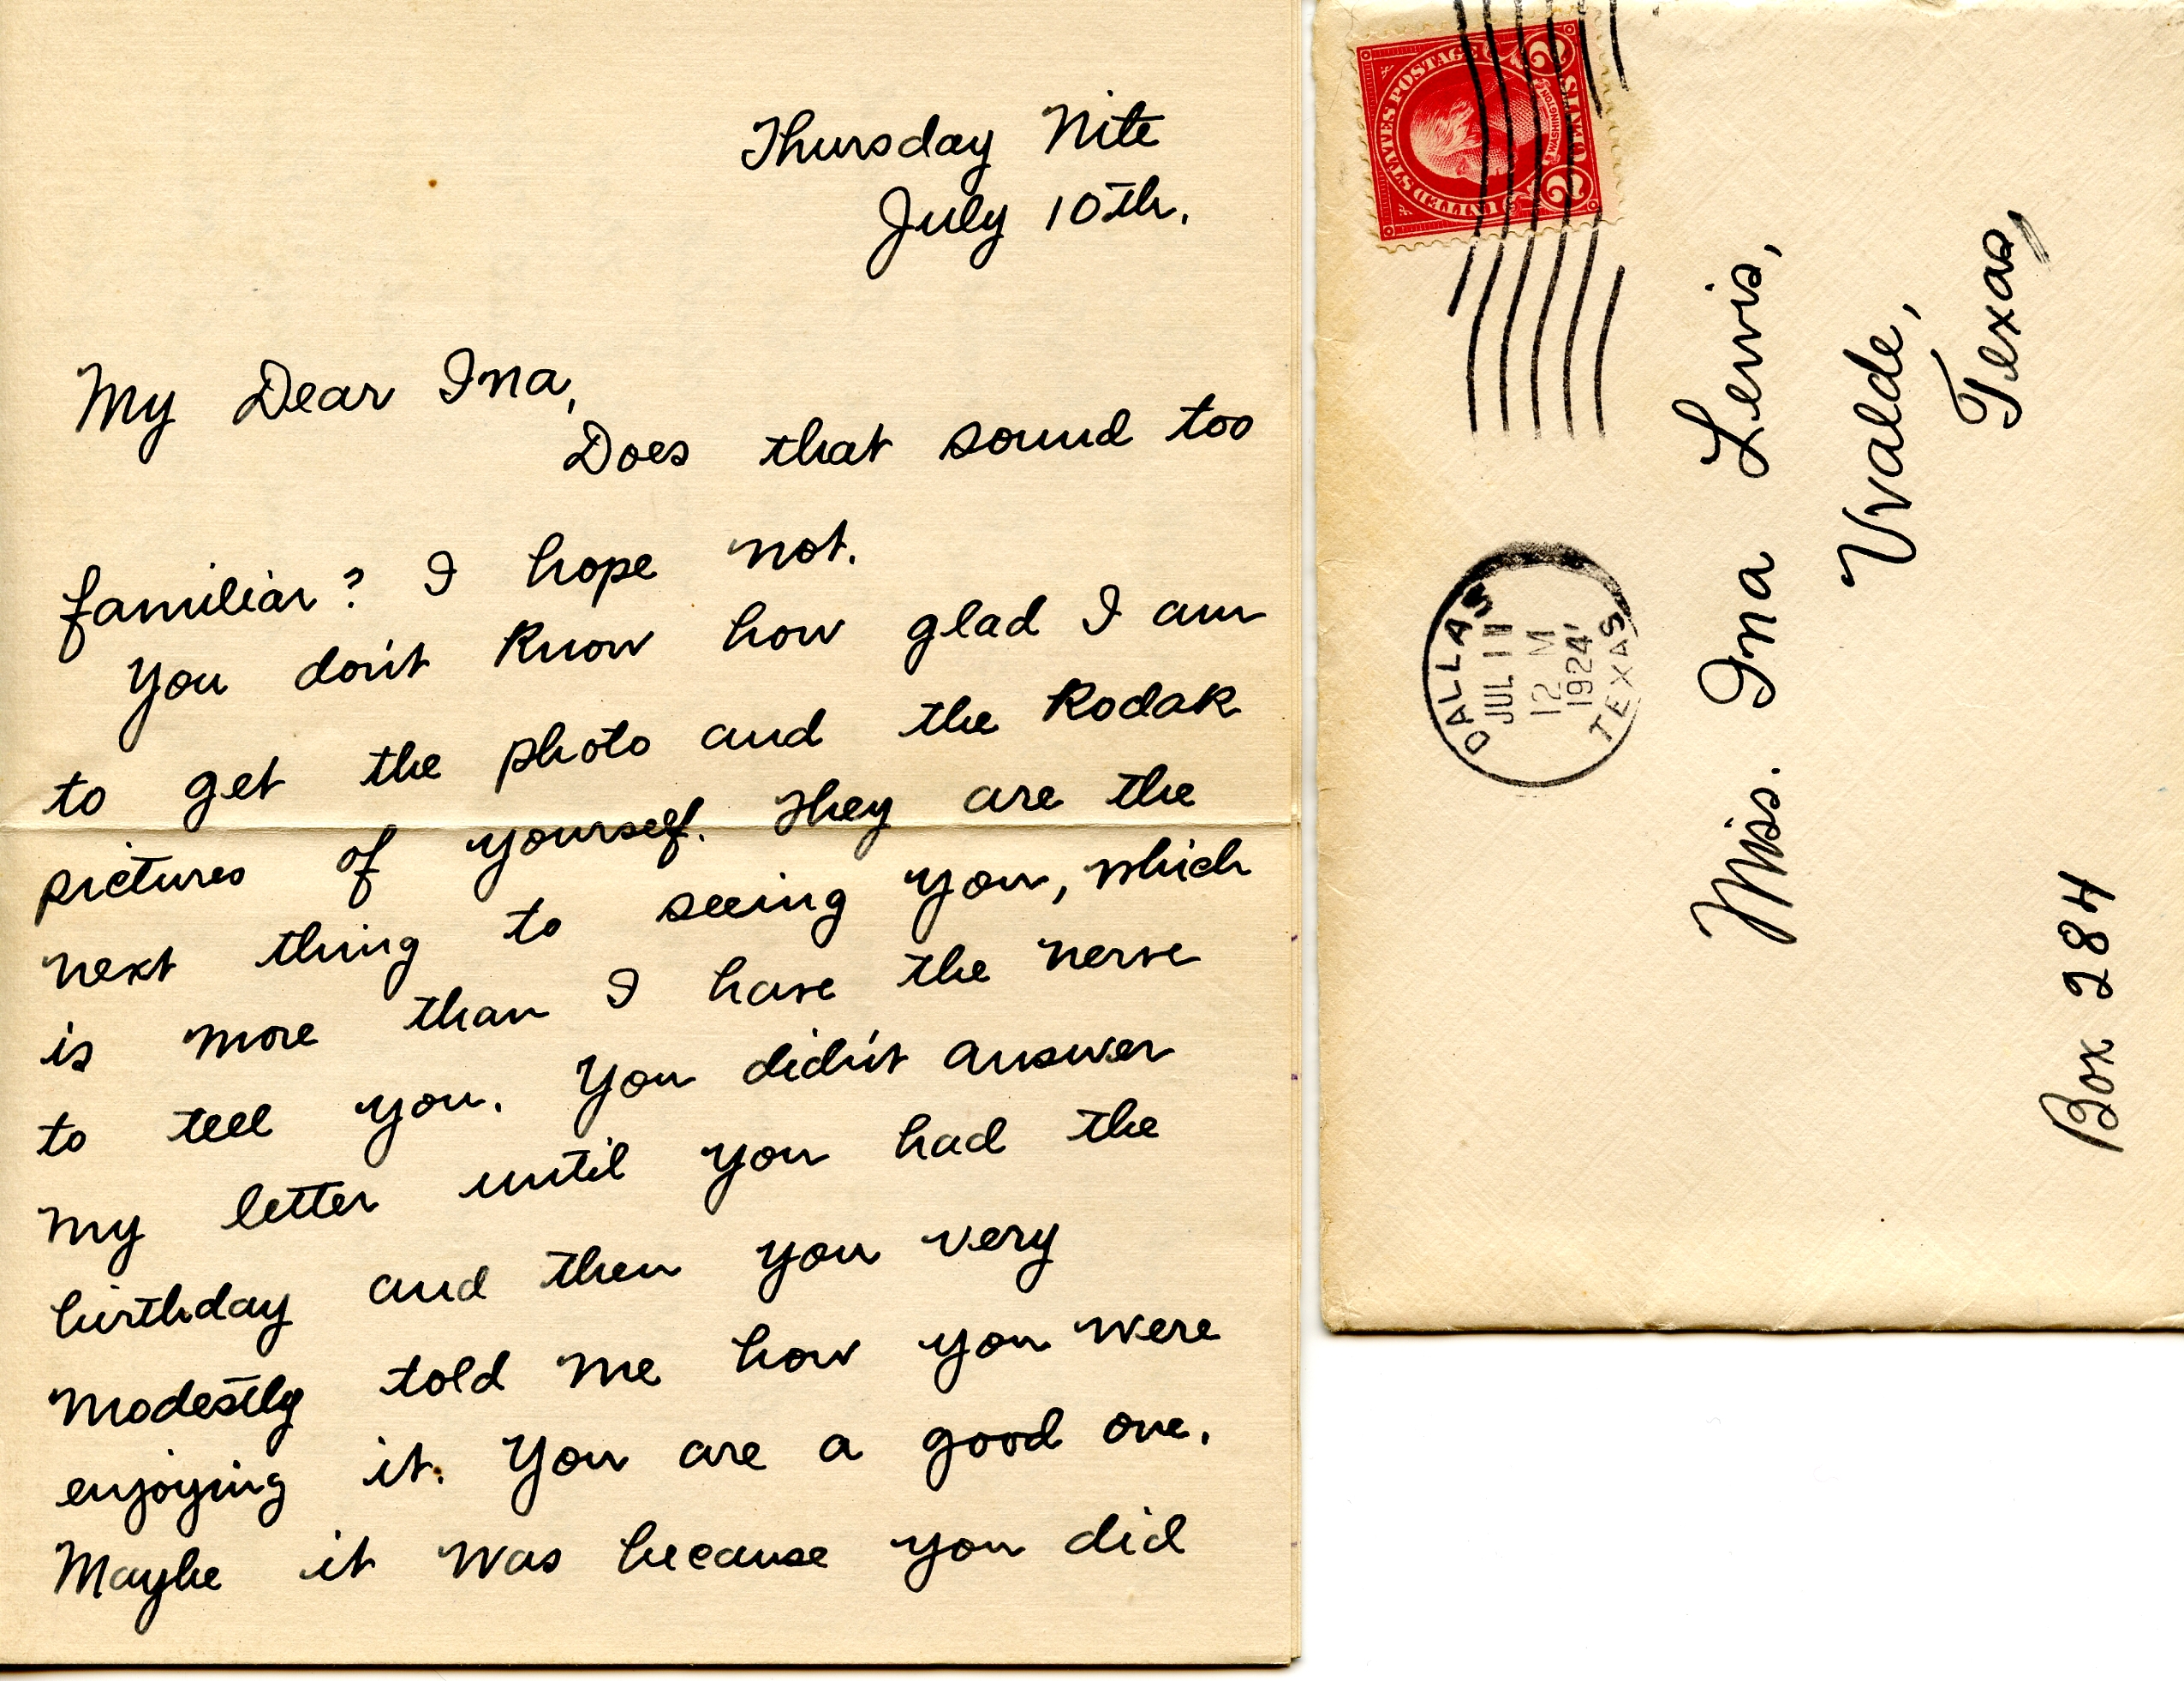 Thursday Nite
July 10th.
My Dear Ina,
Does that sound too
familiar? I hope not.
You don't know how glad I am
to get the photo and the Kodak
pictures of yourself. They are the
next thing to seeing you, which
is more than I have the nerve
to tell you. You didn't answer
my letter until you had the
birthday and then you very
modestly told me how you were
enjoying it. You are a good one.
Maybe it was because you did
UNITED STATES POSTAGE
WASHINGTON
2 CENTS 2
DALLAS
JUL 11
12 M
1924
TEXAS
Miss. Ina Lewis,
Uvalde,
Texas,
Box 284